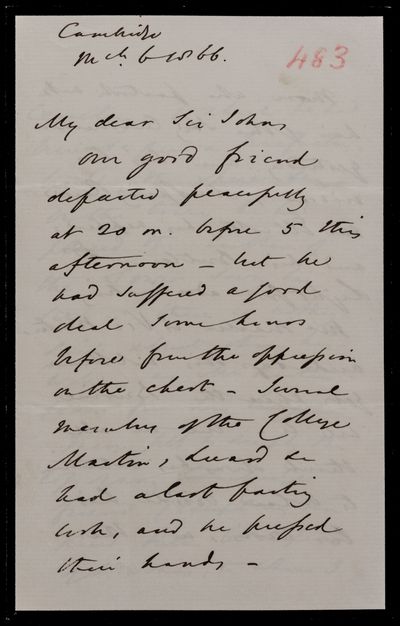 Cambridge
Mch 6 1866.
483
My dear Sir John,
our good friend
departed peacefully
at 20 m. before 5 this
afternoon – but he
had suffered a good
deal some hours
before from the oppression
on the chest – Several
members of the College
Martin, Luard &c
had a last parting
look, and he pressed
their hands –